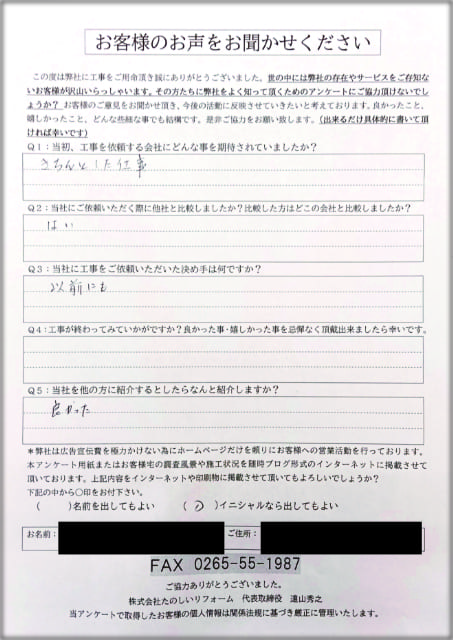 お客様のお声をお聞かせください
この度は弊社に工事をご用命頂き誠にありがとうございました。世の中には弊社の存在やサービスをご存知な
いお客様が沢山いらっしゃいます。その方たちに弊社をよく知って頂くためのアンケートにご協力頂けないでし
ょうか？お客様のご意見をお聞かせ頂き、今後の活動に反映させていきたいと考えております。良かったこと、
嬉しかったこと、どんな些細な事でも結構です。是非ご協力をお願い致します。（出来るだけ具体的に書いて頂
ければ幸いです）
Q1：当初、工事を依頼する会社にどんな事を期待されていましたか？
きちんとした仕事
Q2：当社にご依頼いただく際に他社と比較しましたか？比較した方はどこの会社と比較しましたか？
はい
Q3：当社に工事をご依頼いただいた決め手は何ですか？
以前にも
Q4：工事が終わってみていかがですか？良かった事・嬉しかった事を忌憚なく頂戴出来ましたら幸いです。
Q5：当社を他の方に紹介するとしたらなんと紹介しますか？
良かった
＊弊社は広告宣伝費を極力かけない為にホームページだけを頼りにお客様への営業活動を行っております。
本アンケート用紙またはお客様宅の調査風景や施工状況を随時ブログ形式のインターネットに掲載させて
頂いております。上記内容をインターネットや印刷物に掲載させて頂いてもよろしいでしょうか？
下記の中から〇印をお付下さい。
（　　）名前を出してもよい　　（○）イニシャルなら出してもよい
お名前：　　ご住所：
FAX 0265-55-1987
ご協力ありがとうございました。
株式会社たのしいリフォーム　代表取締役　遠山秀之
当アンケートで取得したお客様の個人情報は関係法規に基づき厳正に管理いたします。